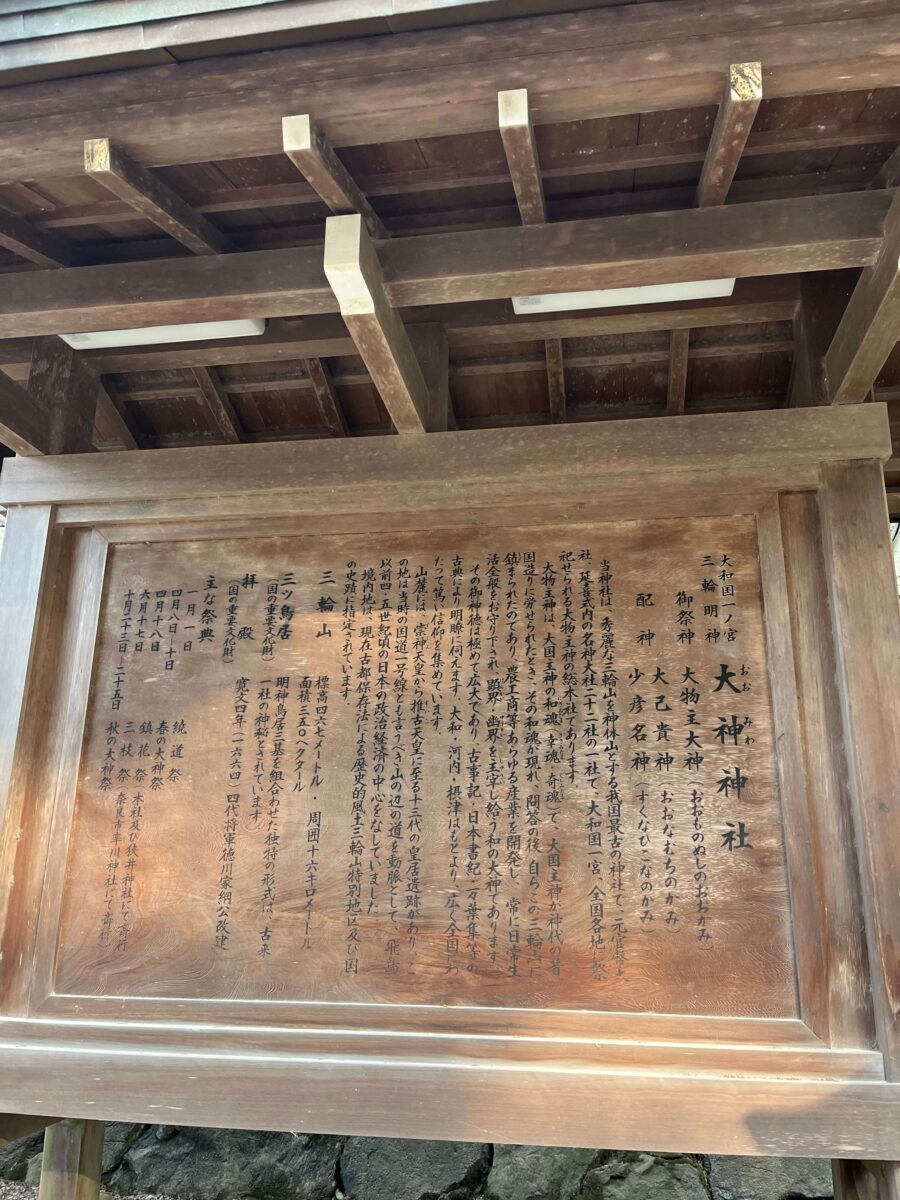 大和国一ノ宮
三輪明神
大神神社
おおみわ
御祭神 大物主大神(おおものぬしのおおかみ)
大己貴神(おおなむちのかみ)
配神 少彦名神(すくなひこなのかみ)
当神社は、秀麗な三輪山を神体山とする我国最古の神社で、元官幣大
社、延喜式内の名神大社、二十二社の一社で、大和国一宮、全国各地に祭
祀せられる大物主神の総本社であります。
大物主神は、大国主神の和魂(幸魂、奇魂)で、大国主神が神代の昔
国造りに労せられたとき、その和魂が現れ、問答の後、自らこの三輪山に
鎮まられたのであり、農工商等あらゆる産業を開発し、常に日常生
活全般をお守り下され、顕界・幽界を主宰し給う和の大神であります。
その御神徳は極めて広大であり、古事記・日本書紀・万葉集等の
古典により明瞭に伺えます。大和・河内・摂津はもとより、広く全国にわ
たって篤い信仰を集めています。
山麓には、崇神天皇から推古天皇に至る十三代の皇居遺跡があり、こ
の地は当時の国道一号線とも言うべき山の辺の道を動脈として、飛鳥
以前四・五世紀頃の日本の政治経済の中心をなしていました。
境内地は、現在古都保存法による歴史的風土三輪山特別地区及び国
の史蹟に指定されています。
三輪山 標高四六七メートル・周囲十六キロメートル
面積三五〇ヘクタール
三ツ鳥居 明神鳥居三基を組合わせた独特の形式は、古来
(国の重要文化財) 一社の神秘とされています
拝殿 寛文四年(一六六四)四代将軍徳川家綱公改建
(国の重要文化財)
主な祭典
一月一日 繞道祭
四月八日・十日 春の大神祭
四月十八日 鎮花祭(本社及び狭井神社にて斎行)
六月十七日 三枝祭(奈良市率川神社にて斎行)
十月二十三日・二十五日 秋の大神祭